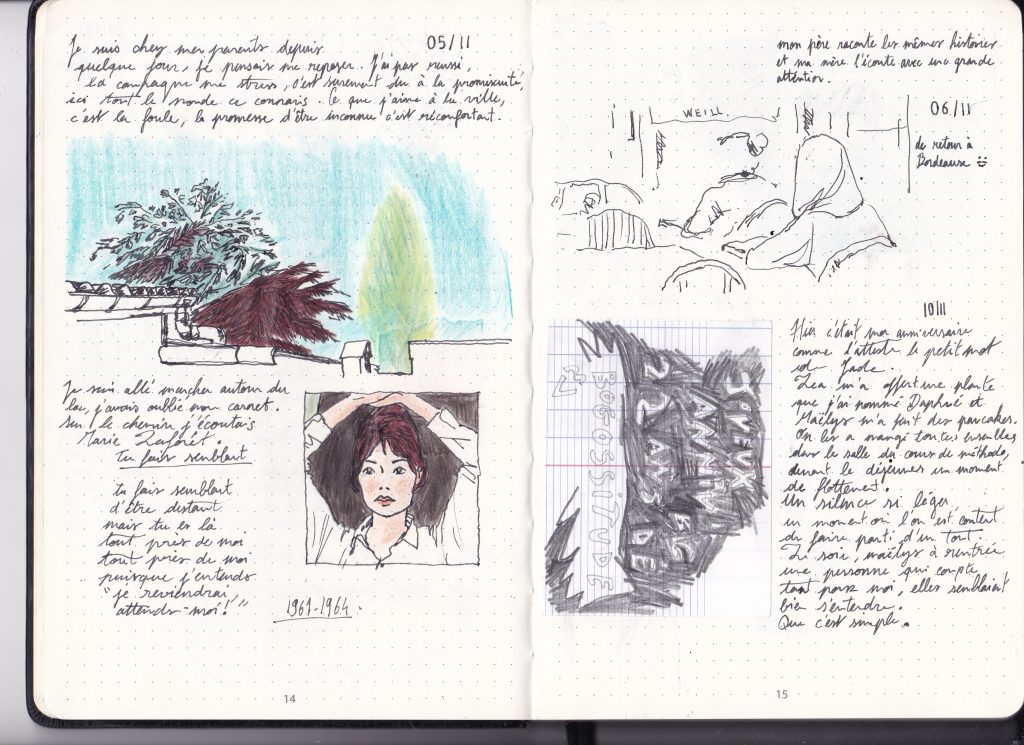 05/11
Je suis chez mes parents depuis
quelque jour, je pensais me reposer. J'ai pas réussi,
la campagne me stress, c'est surement du à la promiscuité,
ici tout le monde ce connais. Ce que j'aime à la ville,
c'est la foule, la promesse d'être inconnu c'est réconfortant.
Je suis allé marcher autour du
lac, j'avais oublié mon carnet.
Sur le chemin j'écoutais
Marie Laforêt.
tu fais semblant
tu fais semblant
d'être distant
mais tu es là
tout près de moi
tout près de moi
puisque j'entends
"je reviendrai,
attends-moi!"
1963-1964.
14
mon père raconte les mêmes histoires
et ma mère l'écoute avec une grande
attention.
WEILL
06/11
de retour à
Bordeaux
10/11
Hier c'était mon anniversaire
comme l'atteste le petit mot
de Jade.
Léa m'a offert une plante
que j'ai nommé Daphné et
Maëlys m'a fait des pancakes.
On les a mangé toutes ensembles
dans la salle du cours de méthodo,
devant le déjeuner un moment
de flottement.
Un silence si léger,
un moment où l'on est content
de faire parti d'un tout.
Le soir, maëlys à rentrée
une personne qui compte
tant pour moi, elles semblaient
bien s'entendre.
Que c'est simple.
JOYEUX
ANNIV
22 ANS DE
BOGOSSITUDE
15